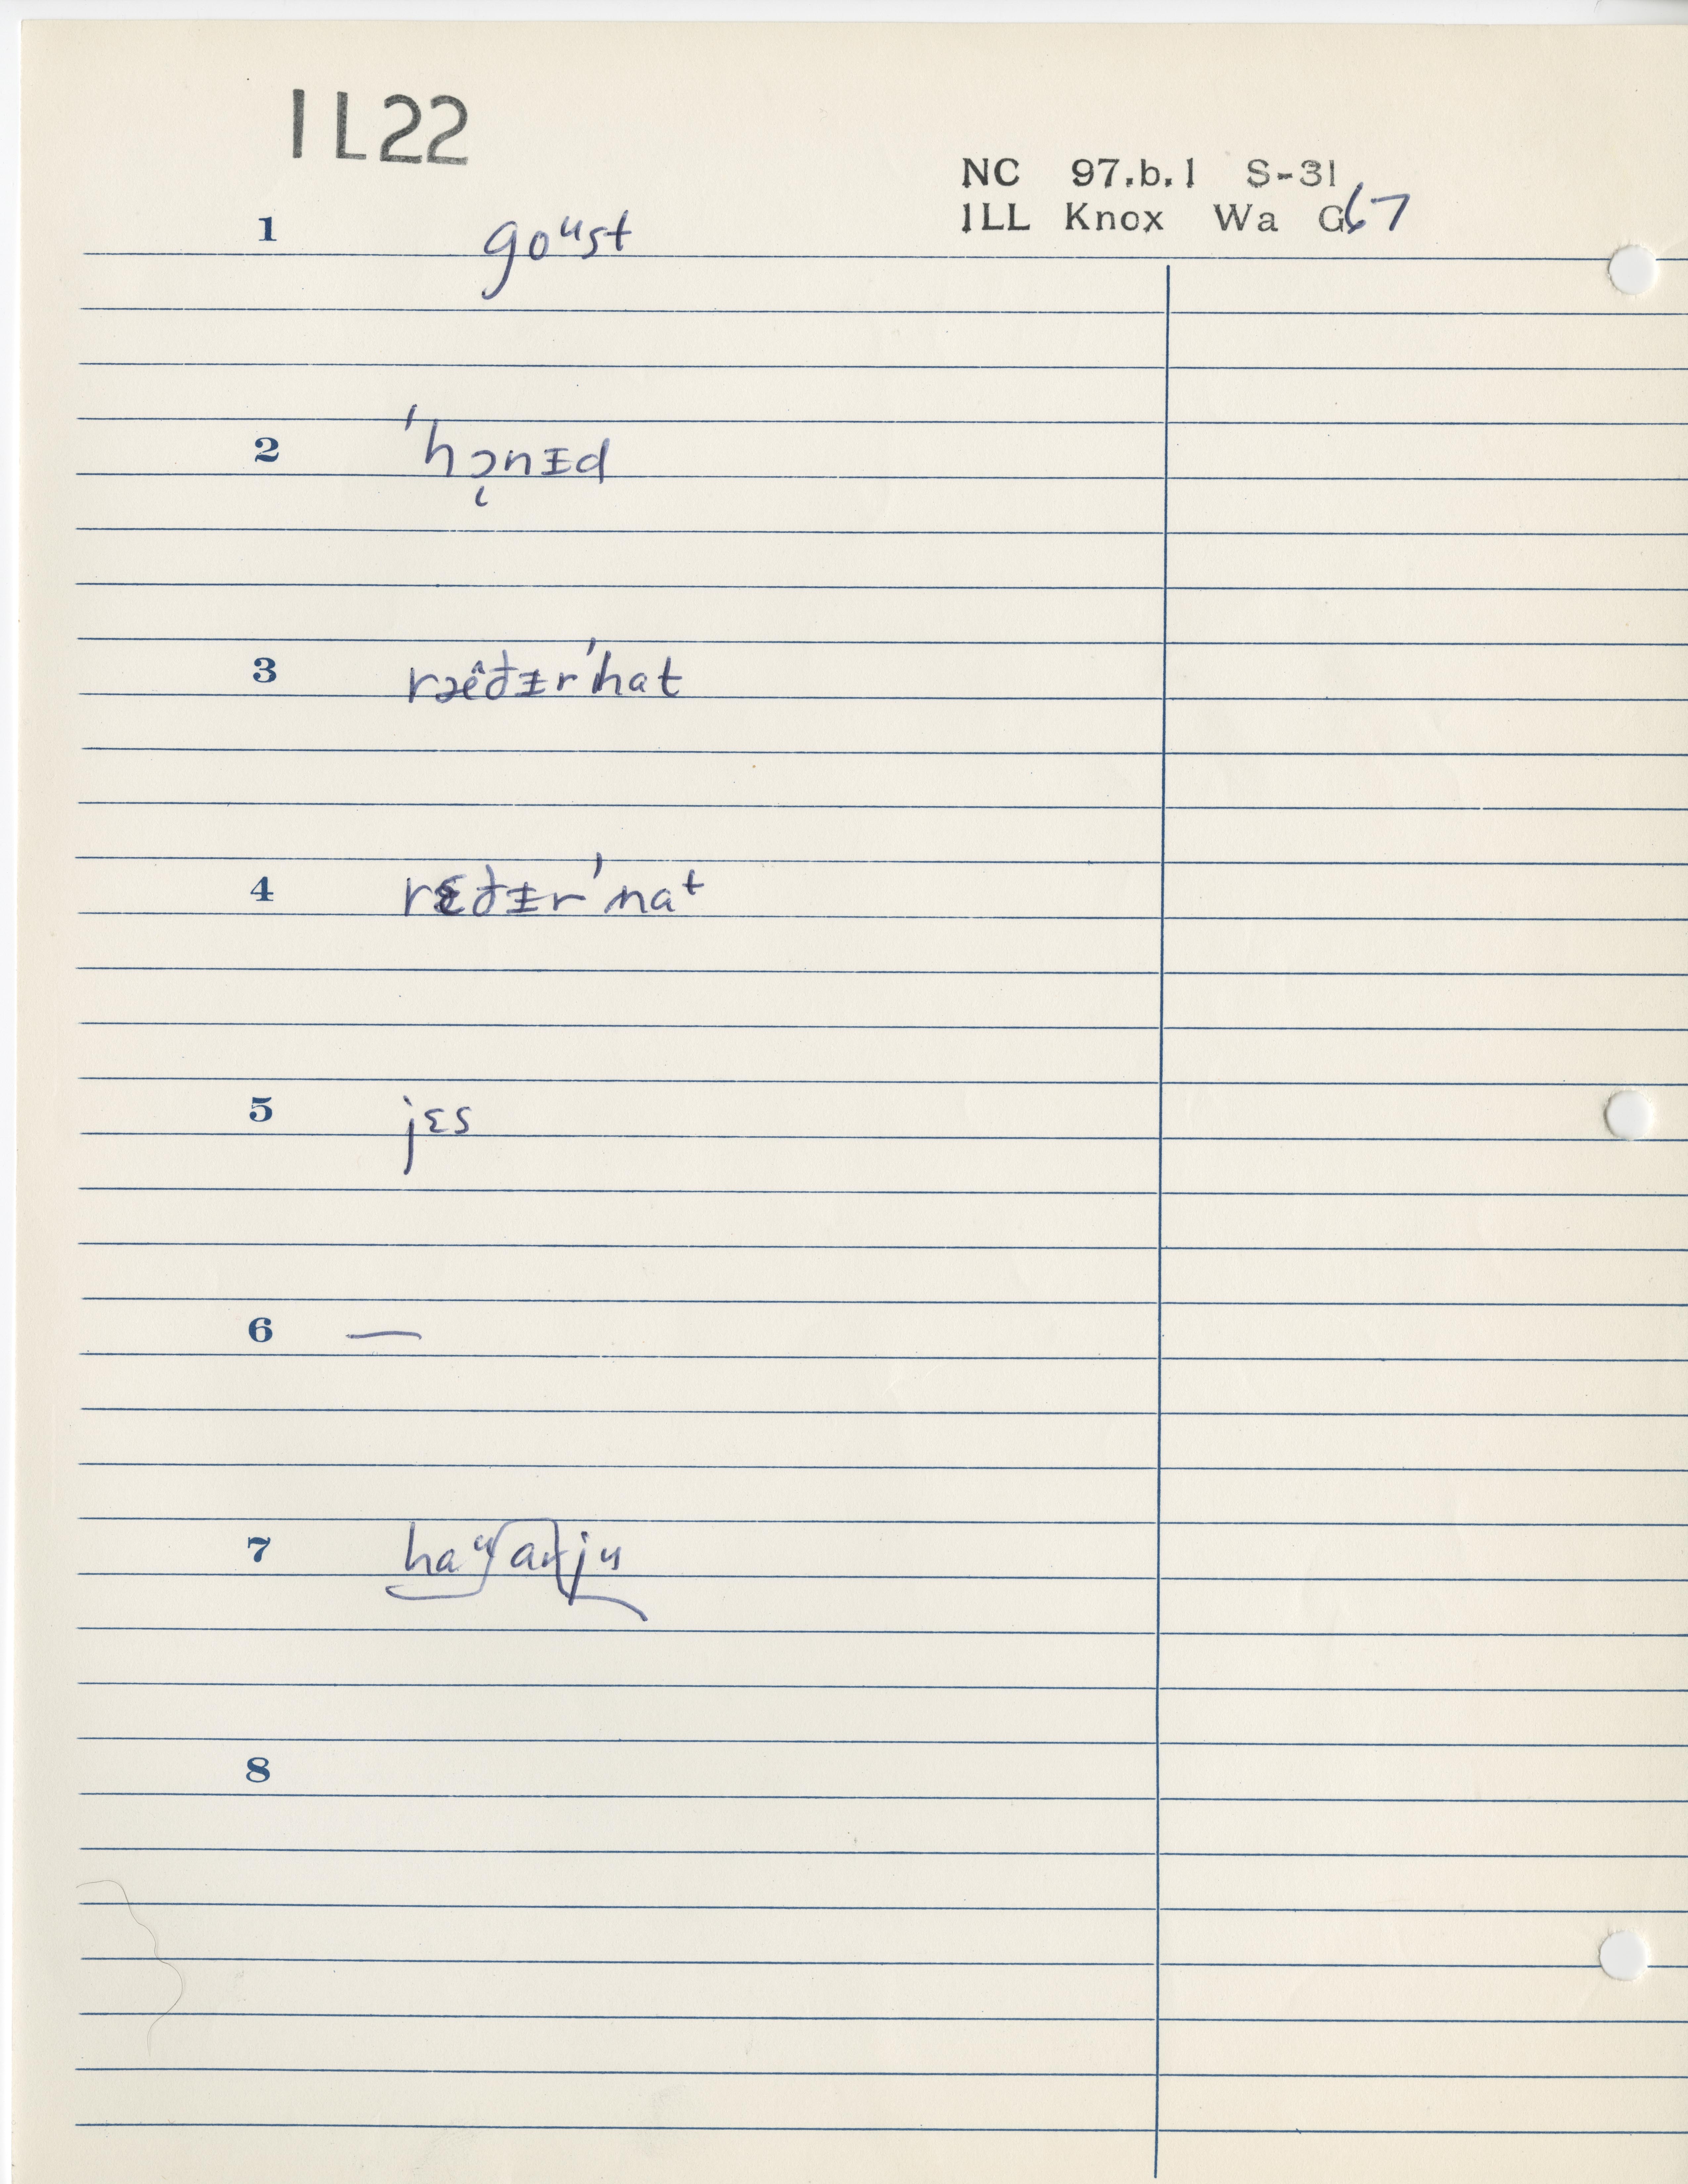 1L22
NC 97.b.1 S-31
ILL Knox Wa G67
1 goᵘst
2 'hɔ̜nɪd
3 ræ̂ðɪr'hat
4 rɛðɪr'nat
5 jɛs
6 —
7 haᵘ ar ju
8